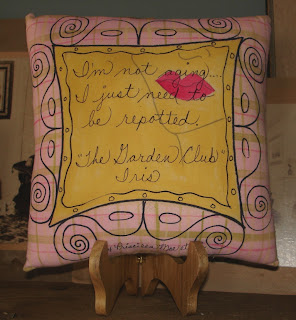 I'm not aging...
I just need to
be repotted.
"The Garden Club"
Iris